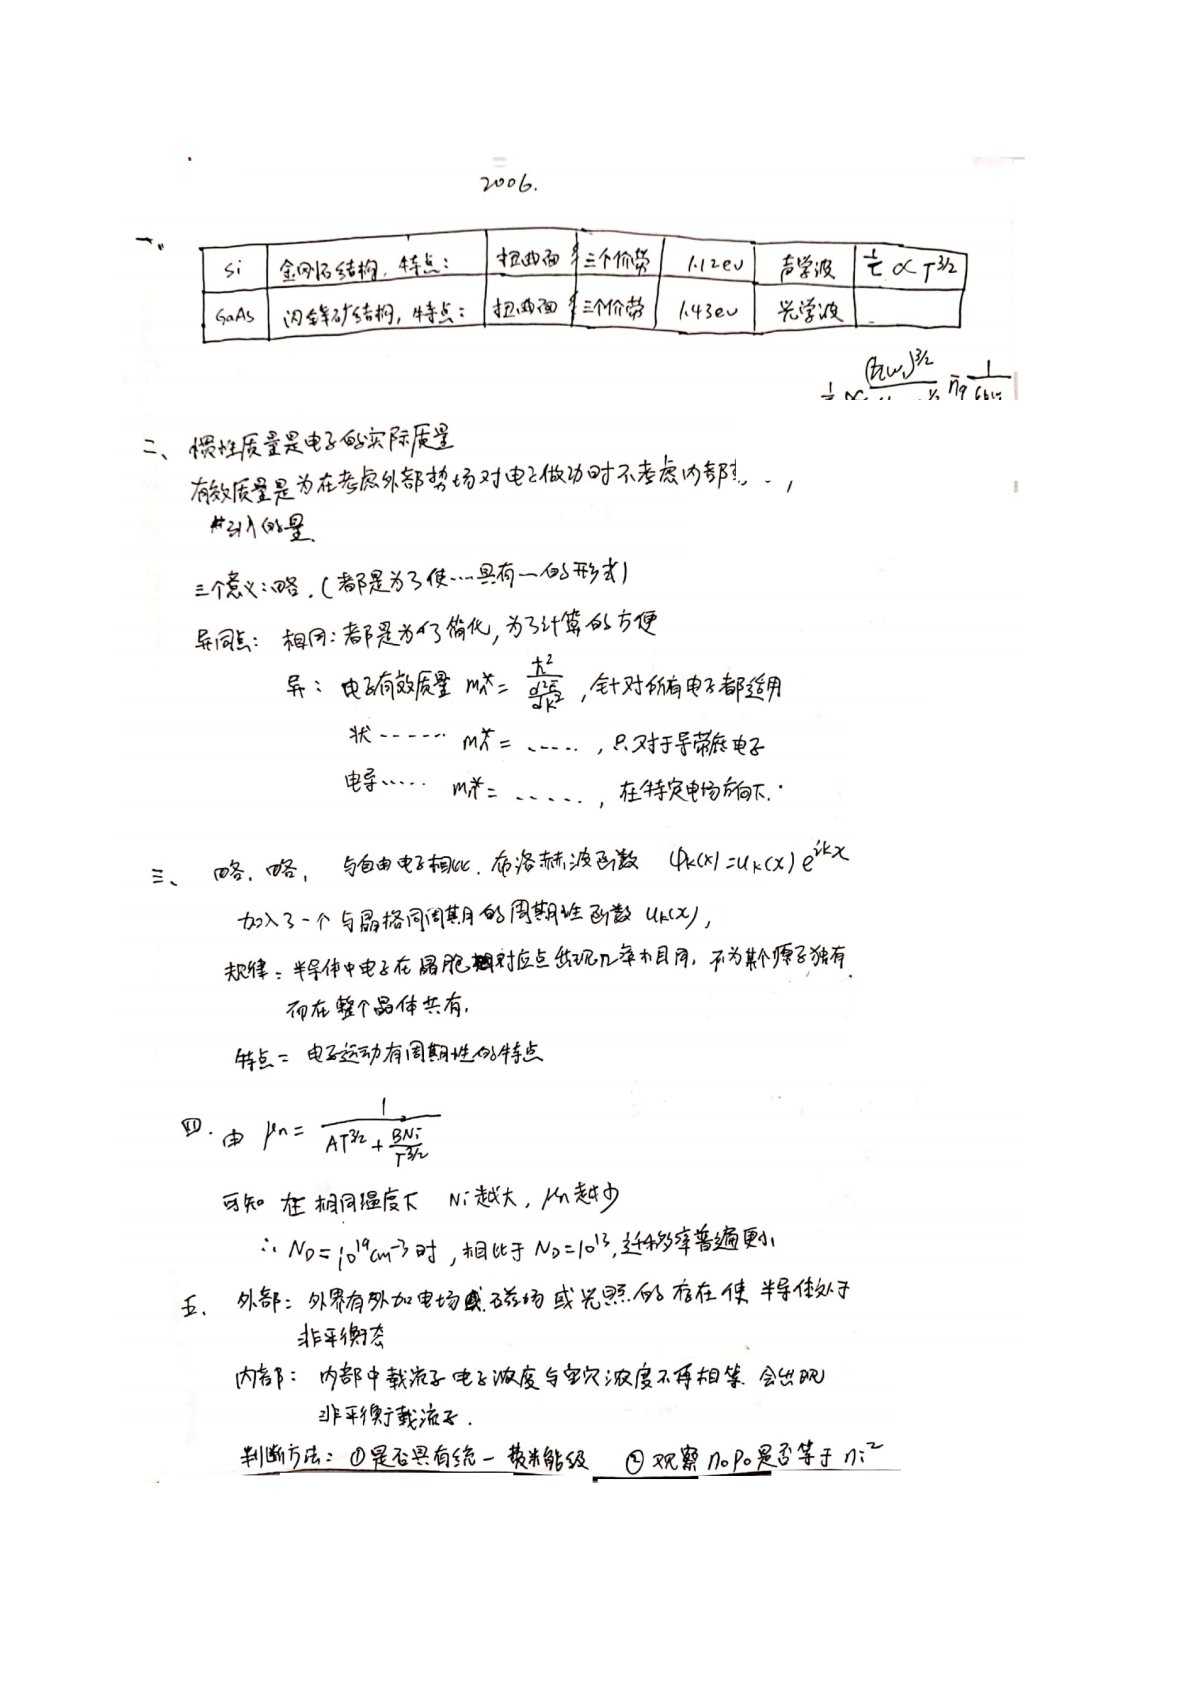 2006.
一、
Si 金刚石结构, 特点: 扭曲面 三个价带 1.12eV 声学波 1/τ ∝ T^3/2
GaAs 闪锌矿结构, 特点: 扭曲面 三个价带 1.43eV 光学波
(ħω)^3/2 n̄q 1
二、惯性质量是电子的实际质量
有效质量是为在考虑外部势场对电子做功时不考虑内部
引入的量.
三个意义:略.(都是为了使…具有一的形式)
异同点: 相同:都是为了简化,为了计算的方便
异: 电子有效质量 mn*= ħ²/(d²E/dk²) ,针对所有电子都适用
状…… mn*= …… ,只对于导带底电子
电导…… mn*= …… ,在特定电场方向下.
三、略. 略, 与自由电子相比. 布洛赫波函数 φk(x)=uk(x)e^ikx
加入了一个与晶格同周期的周期性函数 uk(x),
规律: 半导体中电子在晶胞对应点出现几率相同, 不为某个原子独有
而在整个晶体共有.
特点: 电子运动有周期性的特点
四. 由 μn= 1/(AT^3/2 + BNi/T^3/2)
可知 在相同温度下 Ni越大, μn越少
∴ ND=10^19cm^-3时,相比于ND=10^13,迁移率普遍更小
五、外部: 外界有外加电场或磁场或光照的存在使半导体处于
非平衡态
内部: 内部中载流子电子浓度与空穴浓度不再相等. 会出现
非平衡载流子.
判断方法: ①是否具有统一费米能级 ②观察n0p0是否等于ni²